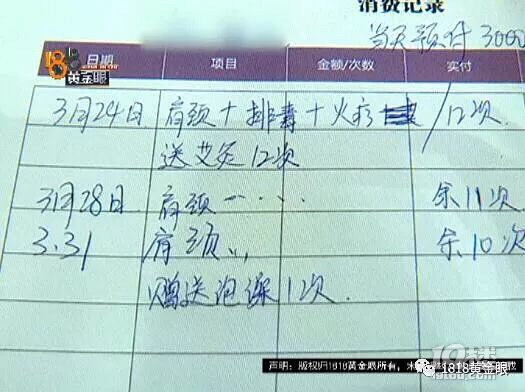 消费记录
当天预付 3000
1818 黄金眼
日期 项目 金额/次数 实付
3月24日 肩颈+排毒+火疗 /12次
送艾灸12次
3月28日 肩颈.... 余11次
3.31 肩颈... 余10次
赠送泡澡1次.
声明:版权归1818黄金眼所有,未
1818黄金眼